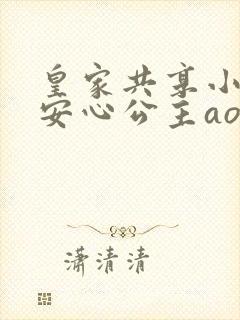 皇家共享小
安心公主ao
潇清清